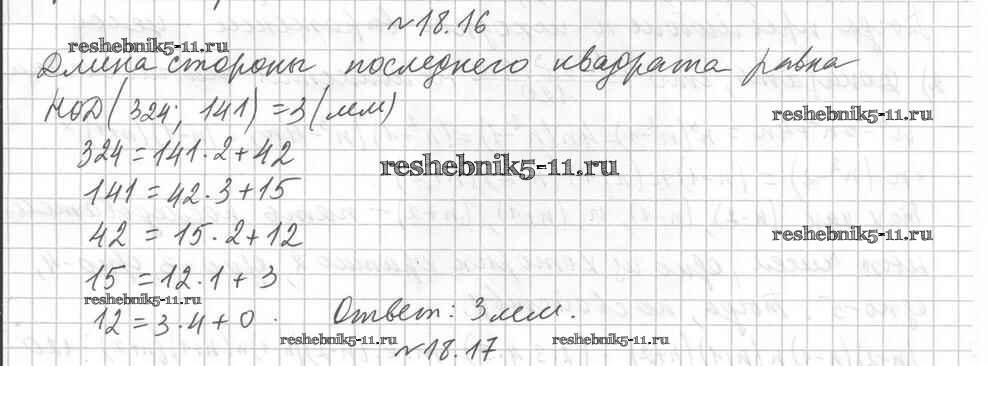 №18.16
reshebnik5-11.ru
Длина стороны последнего квадрата равна
НОД(324; 141) = 3 (мм)
reshebnik5-11.ru
324 = 141 · 2 + 42
reshebnik5-11.ru
141 = 42 · 3 + 15
42 = 15 · 2 + 12
reshebnik5-11.ru
15 = 12 · 1 + 3
reshebnik5-11.ru
12 = 3 · 4 + 0. Ответ: 3 мм.
reshebnik5-11.ru
reshebnik5-11.ru
№18.17